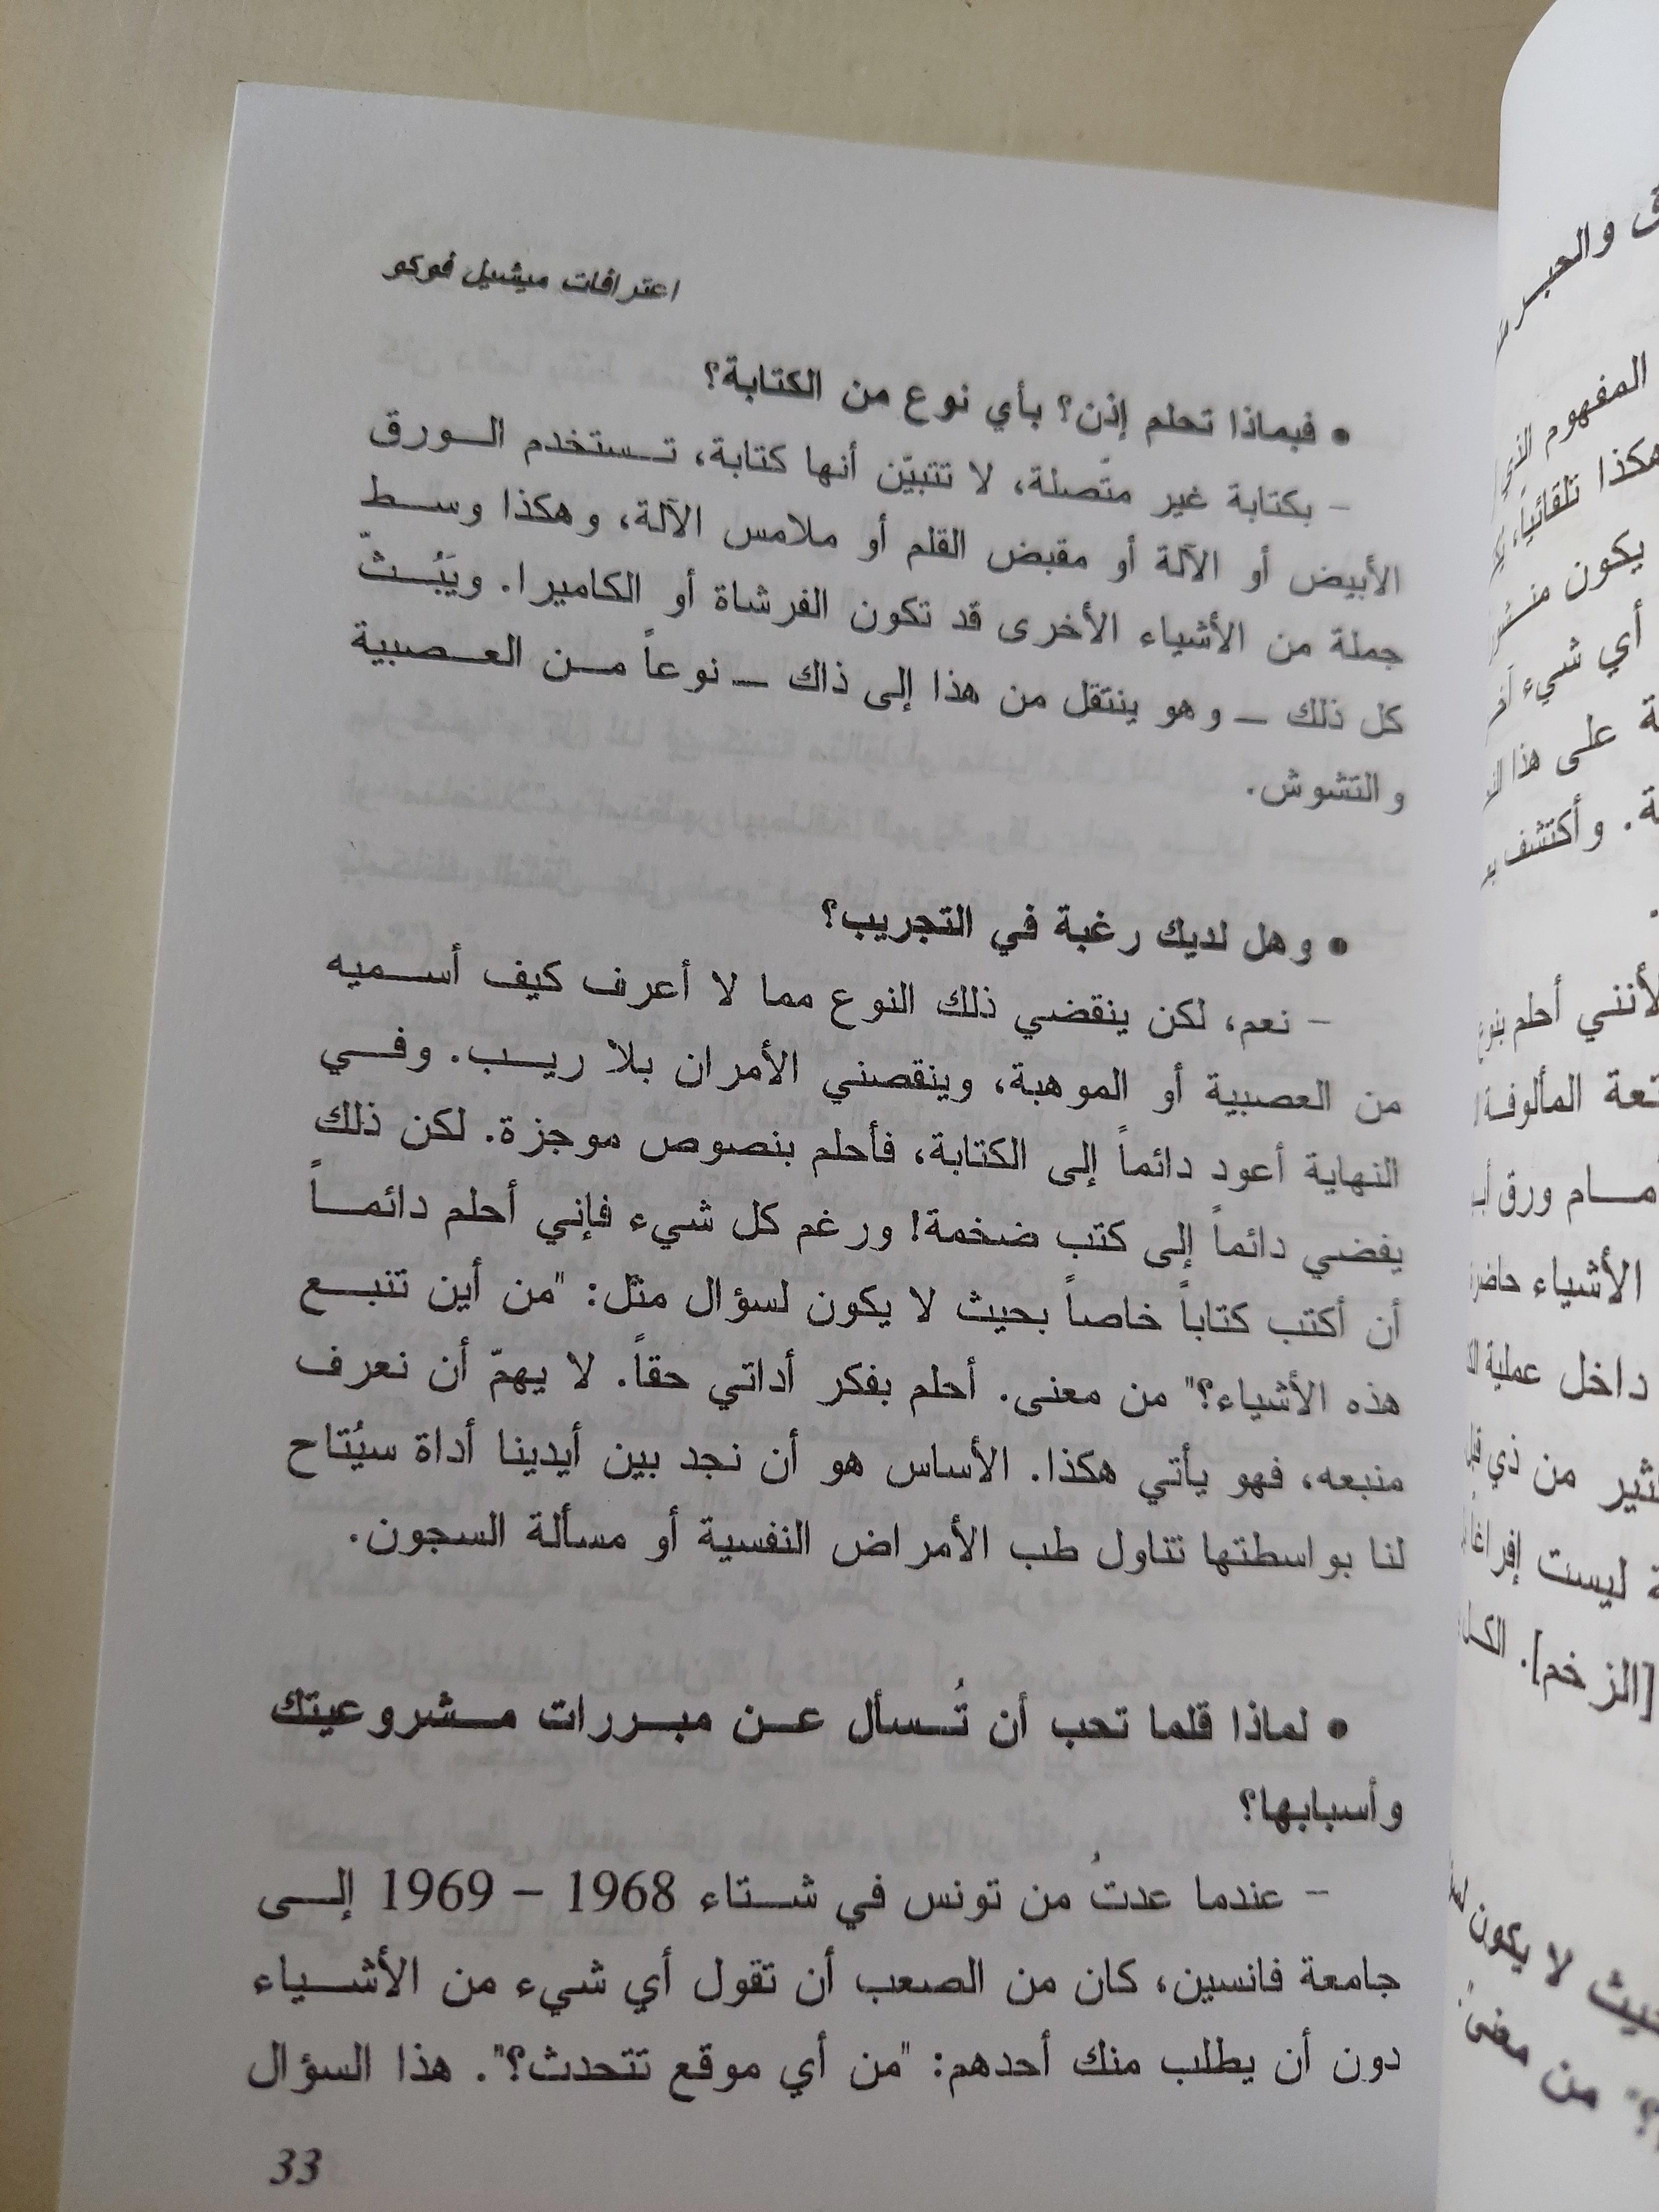 اعترافات ميشيل فوكو
• فبماذا تحلم إذن؟ بأي نوع من الكتابة؟
– بكتابة غير متّصلة، لا تتبيّن أنها كتابة، تستخدم الورق
الأبيض أو الآلة أو مقبض القلم أو ملامس الآلة، وهكذا وسط
جملة من الأشياء الأخرى قد تكون الفرشاة أو الكاميرا. ويَبُثّ
كل ذلك – وهو ينتقل من هذا إلى ذاك – نوعاً من العصبية
والتشوش.
• وهل لديك رغبة في التجريب؟
– نعم، لكن ينقضي ذلك النوع مما لا أعرف كيف أسميه
من العصبية أو الموهبة، وينقصني الأمران بلا ريب. وفي
النهاية أعود دائماً إلى الكتابة، فأحلم بنصوص موجزة. لكن ذلك
يفضي دائماً إلى كتب ضخمة! ورغم كل شيء فإني أحلم دائماً
أن أكتب كتاباً خاصاً بحيث لا يكون لسؤال مثل: "من أين تنبع
هذه الأشياء؟" من معنى. أحلم بفكر أداتي حقاً. لا يهمّ أن نعرف
منبعه، فهو يأتي هكذا. الأساس هو أن نجد بين أيدينا أداة سيُتاح
لنا بواسطتها تناول طب الأمراض النفسية أو مسألة السجون.
• لماذا قلما تحب أن تُسأل عن مبررات مشروعيتك
وأسبابها؟
– عندما عدتُ من تونس في شتاء 1968 – 1969 إلى
جامعة فانسين، كان من الصعب أن تقول أي شيء من الأشياء
دون أن يطلب منك أحدهم: "من أي موقع تتحدث؟". هذا السؤال
33
والحبر
المفهوم الذي
هكذا تلقائياً،
يكون
أي شيء آخر
على هذا
وأكتشف
لأنني أحلم بنوع
المألوفة
ورق
الأشياء
داخل عملية
من ذي
ليست
[الزخم].
لا يكون
من معنى